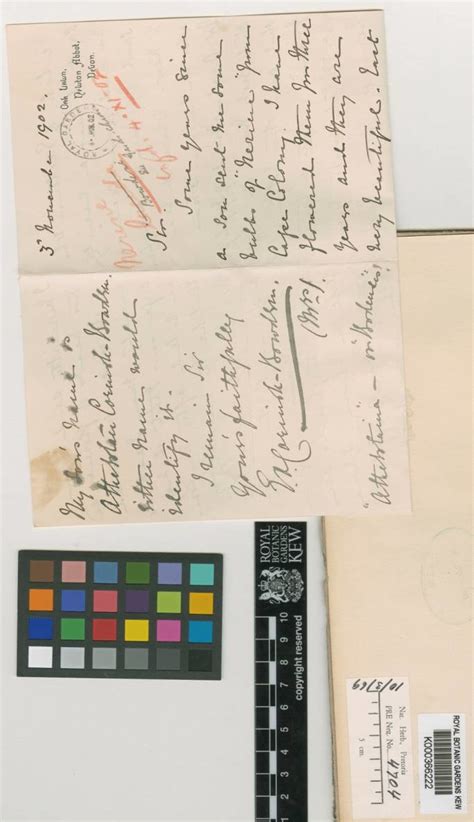 Oak Lawn,
Newton Abbot,
Devon.
3rd November 1902.
Sir.
Some years since
a son sent me some
bulbs of "Nerine" from
Cape Colony. I have
flowered them for three
years and they are
very beautiful. Last
My son's name is
Athelstan Cornish-Bowden.
Either name would
identify it.
I remain Sir
Yours faithfully
Cornish-Bowden.
(Mrs).
"Athelstana" – or "Bodenii"
ROYAL
BOTANIC
GARDENS
KEW
copyright reserved
1 2 3 4 5 6 7 8 9 10
Nat. Herb., Pretoria
PRE Neg. No. 4704
5 cm.
10/3/69
ROYAL BOTANIC GARDENS KEW
K000366222